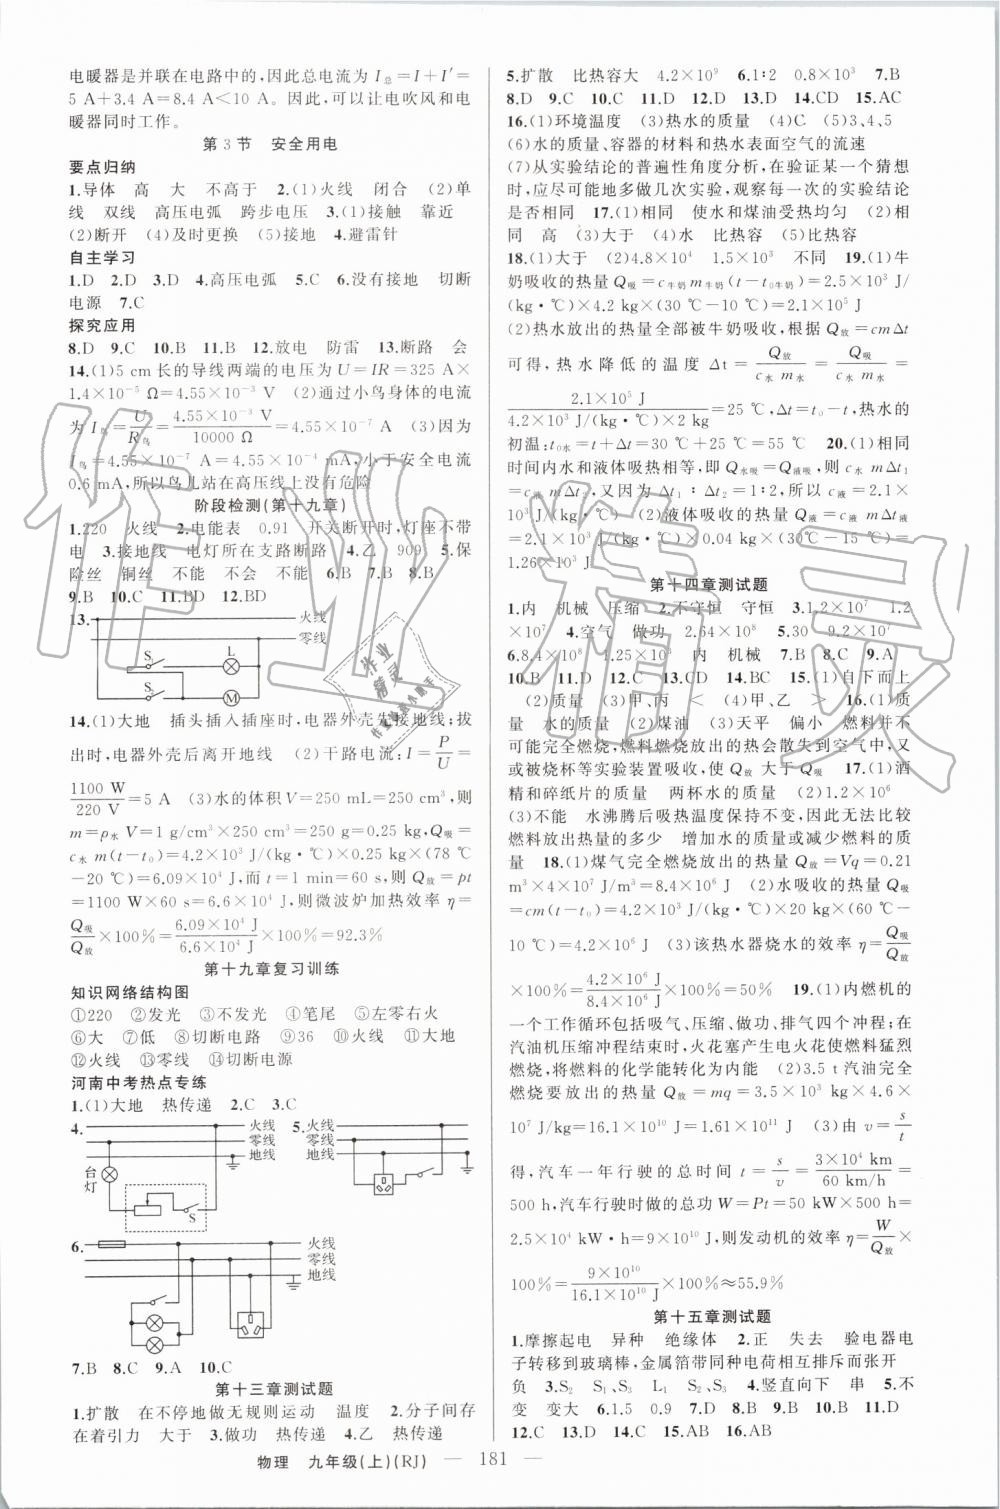 电暖器是并联在电路中的,因此总电流为 I总=I+I′=
5 A+3.4 A=8.4 A<10 A。因此,可以让电吹风和电
暖器同时工作。
第3节 安全用电
要点归纳
1.导体 高 大 不高于 2.(1)火线 闭合 (2)单
线 双线 高压电弧 跨步电压 3.(1)接触 靠近
(2)断开 (4)及时更换 (5)接地 4.避雷针
自主学习
1.D 2.D 3.D 4.高压电弧 5.C 6.没有接地 切断
电源 7.C
探究应用
8.D 9.C 10.B 11.B 12.放电 防雷 13.断路 会
14.(1)5 cm长的导线两端的电压为U=IR=325 A×
1.4×10⁻⁵ Ω=4.55×10⁻³ V (2)通过小鸟身体的电流
为 I鸟=U/R鸟=4.55×10⁻³ V/10000 Ω=4.55×10⁻⁷ A (3)因为
I鸟=4.55×10⁻⁷ A=4.55×10⁻⁴ mA,小于安全电流
0.6 mA,所以鸟儿站在高压线上没有危险
阶段检测(第十九章)
1.220 火线 2.电能表 0.91 开关断开时,灯座不带
电 3.接地线 电灯所在支路断路 4.乙 909 5.保
险丝 铜丝 不能 不会 不能
9.B 10.C 11.BD 12.BD
13.
火线
零线
S₁ L
S₂ M
14.(1)大地 插头插入插座时,电器外壳先接地线;拔
出时,电器外壳后离开地线 (2)干路电流:I=P/U=
1100 W/220 V=5 A (3)水的体积V=250 mL=250 cm³,则
m=ρ水V=1 g/cm³×250 cm³=250 g=0.25 kg,Q吸=
c水m(t-t₀)=4.2×10³ J/(kg·℃)×0.25 kg×(78 ℃
-20 ℃)=6.09×10⁴ J,而t=1 min=60 s,则Q放=pt
=1100 W×60 s=6.6×10⁴ J,则微波炉加热效率η=
Q吸/Q放×100%=6.09×10⁴ J/6.6×10⁴ J×100%=92.3%
第十九章复习训练
知识网络结构图
①220 ②发光 ③不发光 ④笔尾 ⑤左零右火
⑥大 ⑦低 ⑧切断电路 ⑨36 ⑩火线 ⑪大地
⑫火线 ⑬零线 ⑭切断电源
河南中考热点专练
1.(1)大地 热传递 2.C 3.C
4. 火线 零线 地线 台灯 S
5. 火线 零线 地线
6. 火线 零线 地线
7.B 8.C 9.A 10.C
第十三章测试题
1.扩散 在不停地做无规则运动 温度 2.分子间存
在着引力 大于 3.做功 热传递 4.热传递
5.扩散 比热容大 4.2×10⁹ 6.1∶2 0.8×10³ 7.B
8.D 9.C 10.C 11.D 12.D 13.D 14.CD 15.AC
16.(1)环境温度 (3)热水的质量 (4)C (5)3、4、5
(6)水的质量、容器的材料和热水表面空气的流速
(7)从实验结论的普遍性角度分析,在验证某一个猜想
时,应尽可能地多做几次实验,观察每一次的实验结论
是否相同 17.(1)相同 使水和煤油受热均匀 (2)相
同 高 (3)大于 (4)水 比热容 (5)比热容
18.(1)大于 (2)4.8×10⁴ 1.5×10³ 不同 19.(1)牛
奶吸收的热量Q吸=c牛奶m牛奶(t-t₀牛奶)=2.5×10³ J/
(kg·℃)×4.2 kg×(30 ℃-10 ℃)=2.1×10⁵ J
(2)热水放出的热量全部被牛奶吸收,根据Q放=cmΔt
可得,热水降低的温度Δt=Q放/c水m水=Q吸/c水m水=
2.1×10⁵ J/4.2×10³ J/(kg·℃)×2 kg=25 ℃,Δt=t₀-t,热水的
初温:t₀水=t+Δt=30 ℃+25 ℃=55 ℃ 20.(1)相同
时间内水和液体吸热相等,即Q水吸=Q液吸,则c水mΔt₁
=c液mΔt₂,又因为Δt₁∶Δt₂=1∶2,所以c液=2.1×
10³ J/(kg·℃) (2)液体吸收的热量Q液=c液mΔt液
=2.1×10³ J/(kg·℃)×0.04 kg×(30 ℃-15 ℃)=
1.26×10³ J
第十四章测试题
1.内 机械 压缩 2.不守恒 守恒 3.1.2×10⁷ 1.2
×10⁷ 4.空气 做功 2.64×10⁸ 5.30 9.2×10⁷
6.8.4×10⁸ 1.25×10³ 内 机械 7.B 8.C 9.A
10.B 11.D 12.D 13.D 14.BC 15.(1)自下而上
(2)质量 (3)甲、丙 < (4)甲、乙 > 16.(1)质
量 水的质量 (2)煤油 (3)天平 偏小 燃料并不
可能完全燃烧,燃料燃烧放出的热会散失到空气中,又
或被烧杯等实验装置吸收,使Q放大于Q吸 17.(1)酒
精和碎纸片的质量 两杯水的质量 (2)1.2×10⁶
(3)不能 水沸腾后吸热温度保持不变,因此无法比较
燃料放出热量的多少 增加水的质量或减少燃料的质
量 18.(1)煤气完全燃烧放出的热量Q放=Vq=0.21
m³×4×10⁷ J/m³=8.4×10⁶ J (2)水吸收的热量Q吸
=cm(t-t₀)=4.2×10³ J/(kg·℃)×20 kg×(60 ℃-
10 ℃)=4.2×10⁶ J (3)该热水器烧水的效率η=Q吸/Q放
×100%=4.2×10⁶ J/8.4×10⁶ J×100%=50% 19.(1)内燃机的
一个工作循环包括吸气、压缩、做功、排气四个冲程;在
汽油机压缩冲程结束时,火花塞产生电火花使燃料猛烈
燃烧,将燃料的化学能转化为内能 (2)3.5 t汽油完全
燃烧要放出的热量Q放=mq=3.5×10³ kg×4.6×
10⁷ J/kg=16.1×10¹⁰ J=1.61×10¹¹ J (3)由v=s/t
得,汽车一年行驶的总时间t=s/v=3×10⁴ km/60 km/h=
500 h,汽车行驶时做的总功W=Pt=50 kW×500 h=
2.5×10⁴ kW·h=9×10¹⁰ J,则发动机的效率η=W/Q放×
100%=9×10¹⁰/16.1×10¹⁰ J×100%≈55.9%
第十五章测试题
1.摩擦起电 异种 绝缘体 2.正 失去 验电器电
子转移到玻璃棒,金属箔带同种电荷相互排斥而张开
负 3.S₂ S₁、S₃ L₁ S₂、S₃ 4.竖直向下 串 5.不
变 变大 6.1.5 0.9 7.D 8.B 9.B 10.B 11.D
12.C 13.D 14.C 15.D 16.C
物理 九年级(上)(RJ) — 181 —
作业精灵
作业精灵